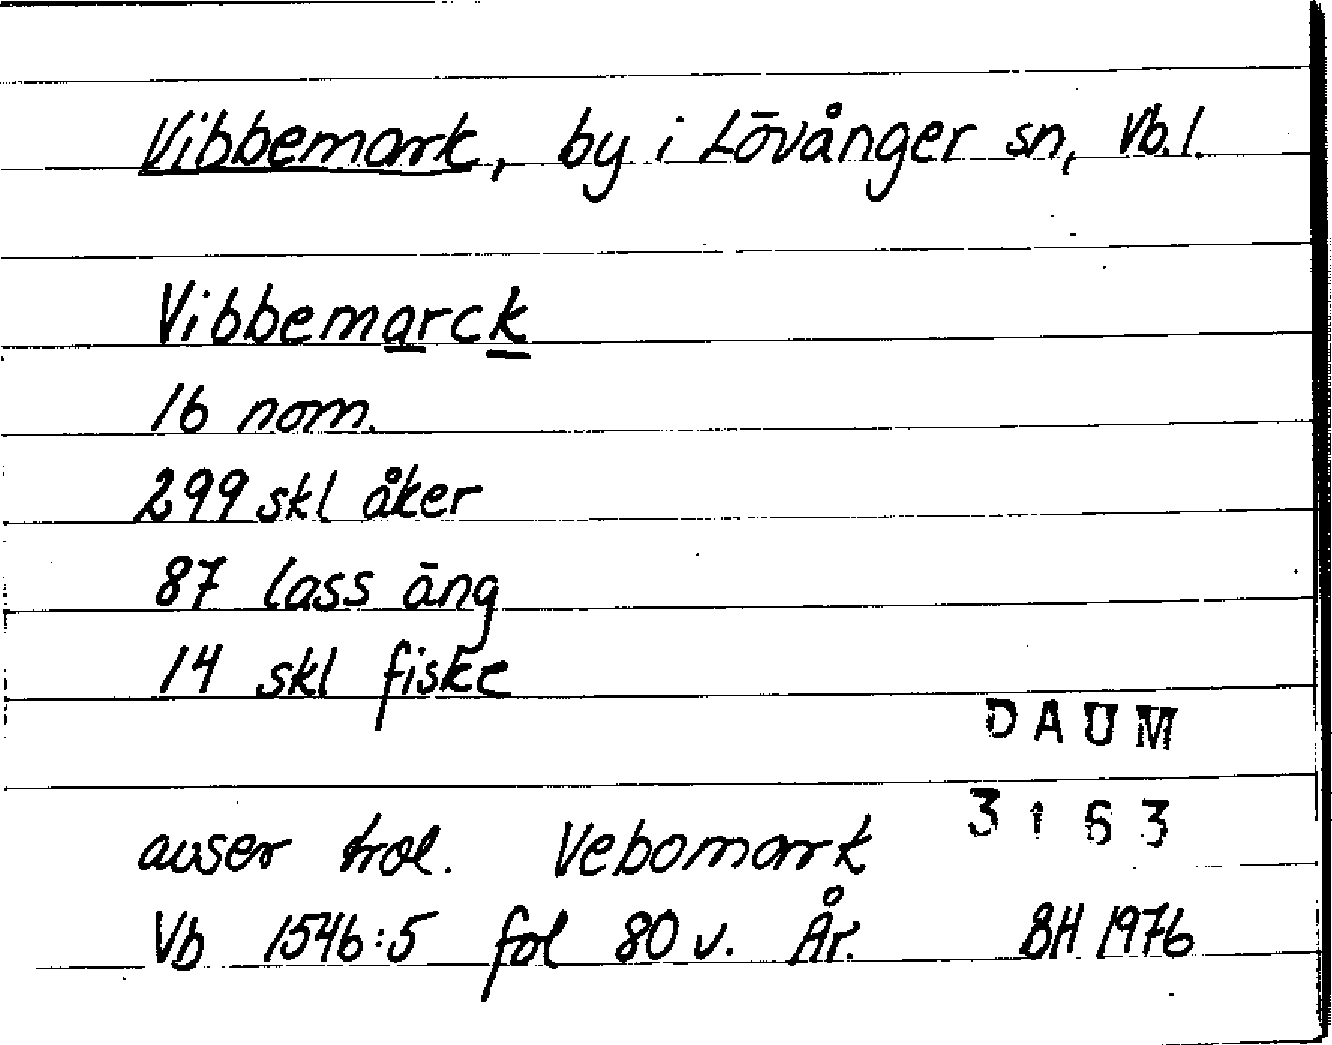 Vibbemark, by i Lövånger sn, Vb.l.
Vibbemarck
16 nom.
299 skl åker
87 lass äng
14 skl fiske
DAUM
3163
avser trol. Vebomark
Vb 1546:5 fol 80 v. År. BH 1976